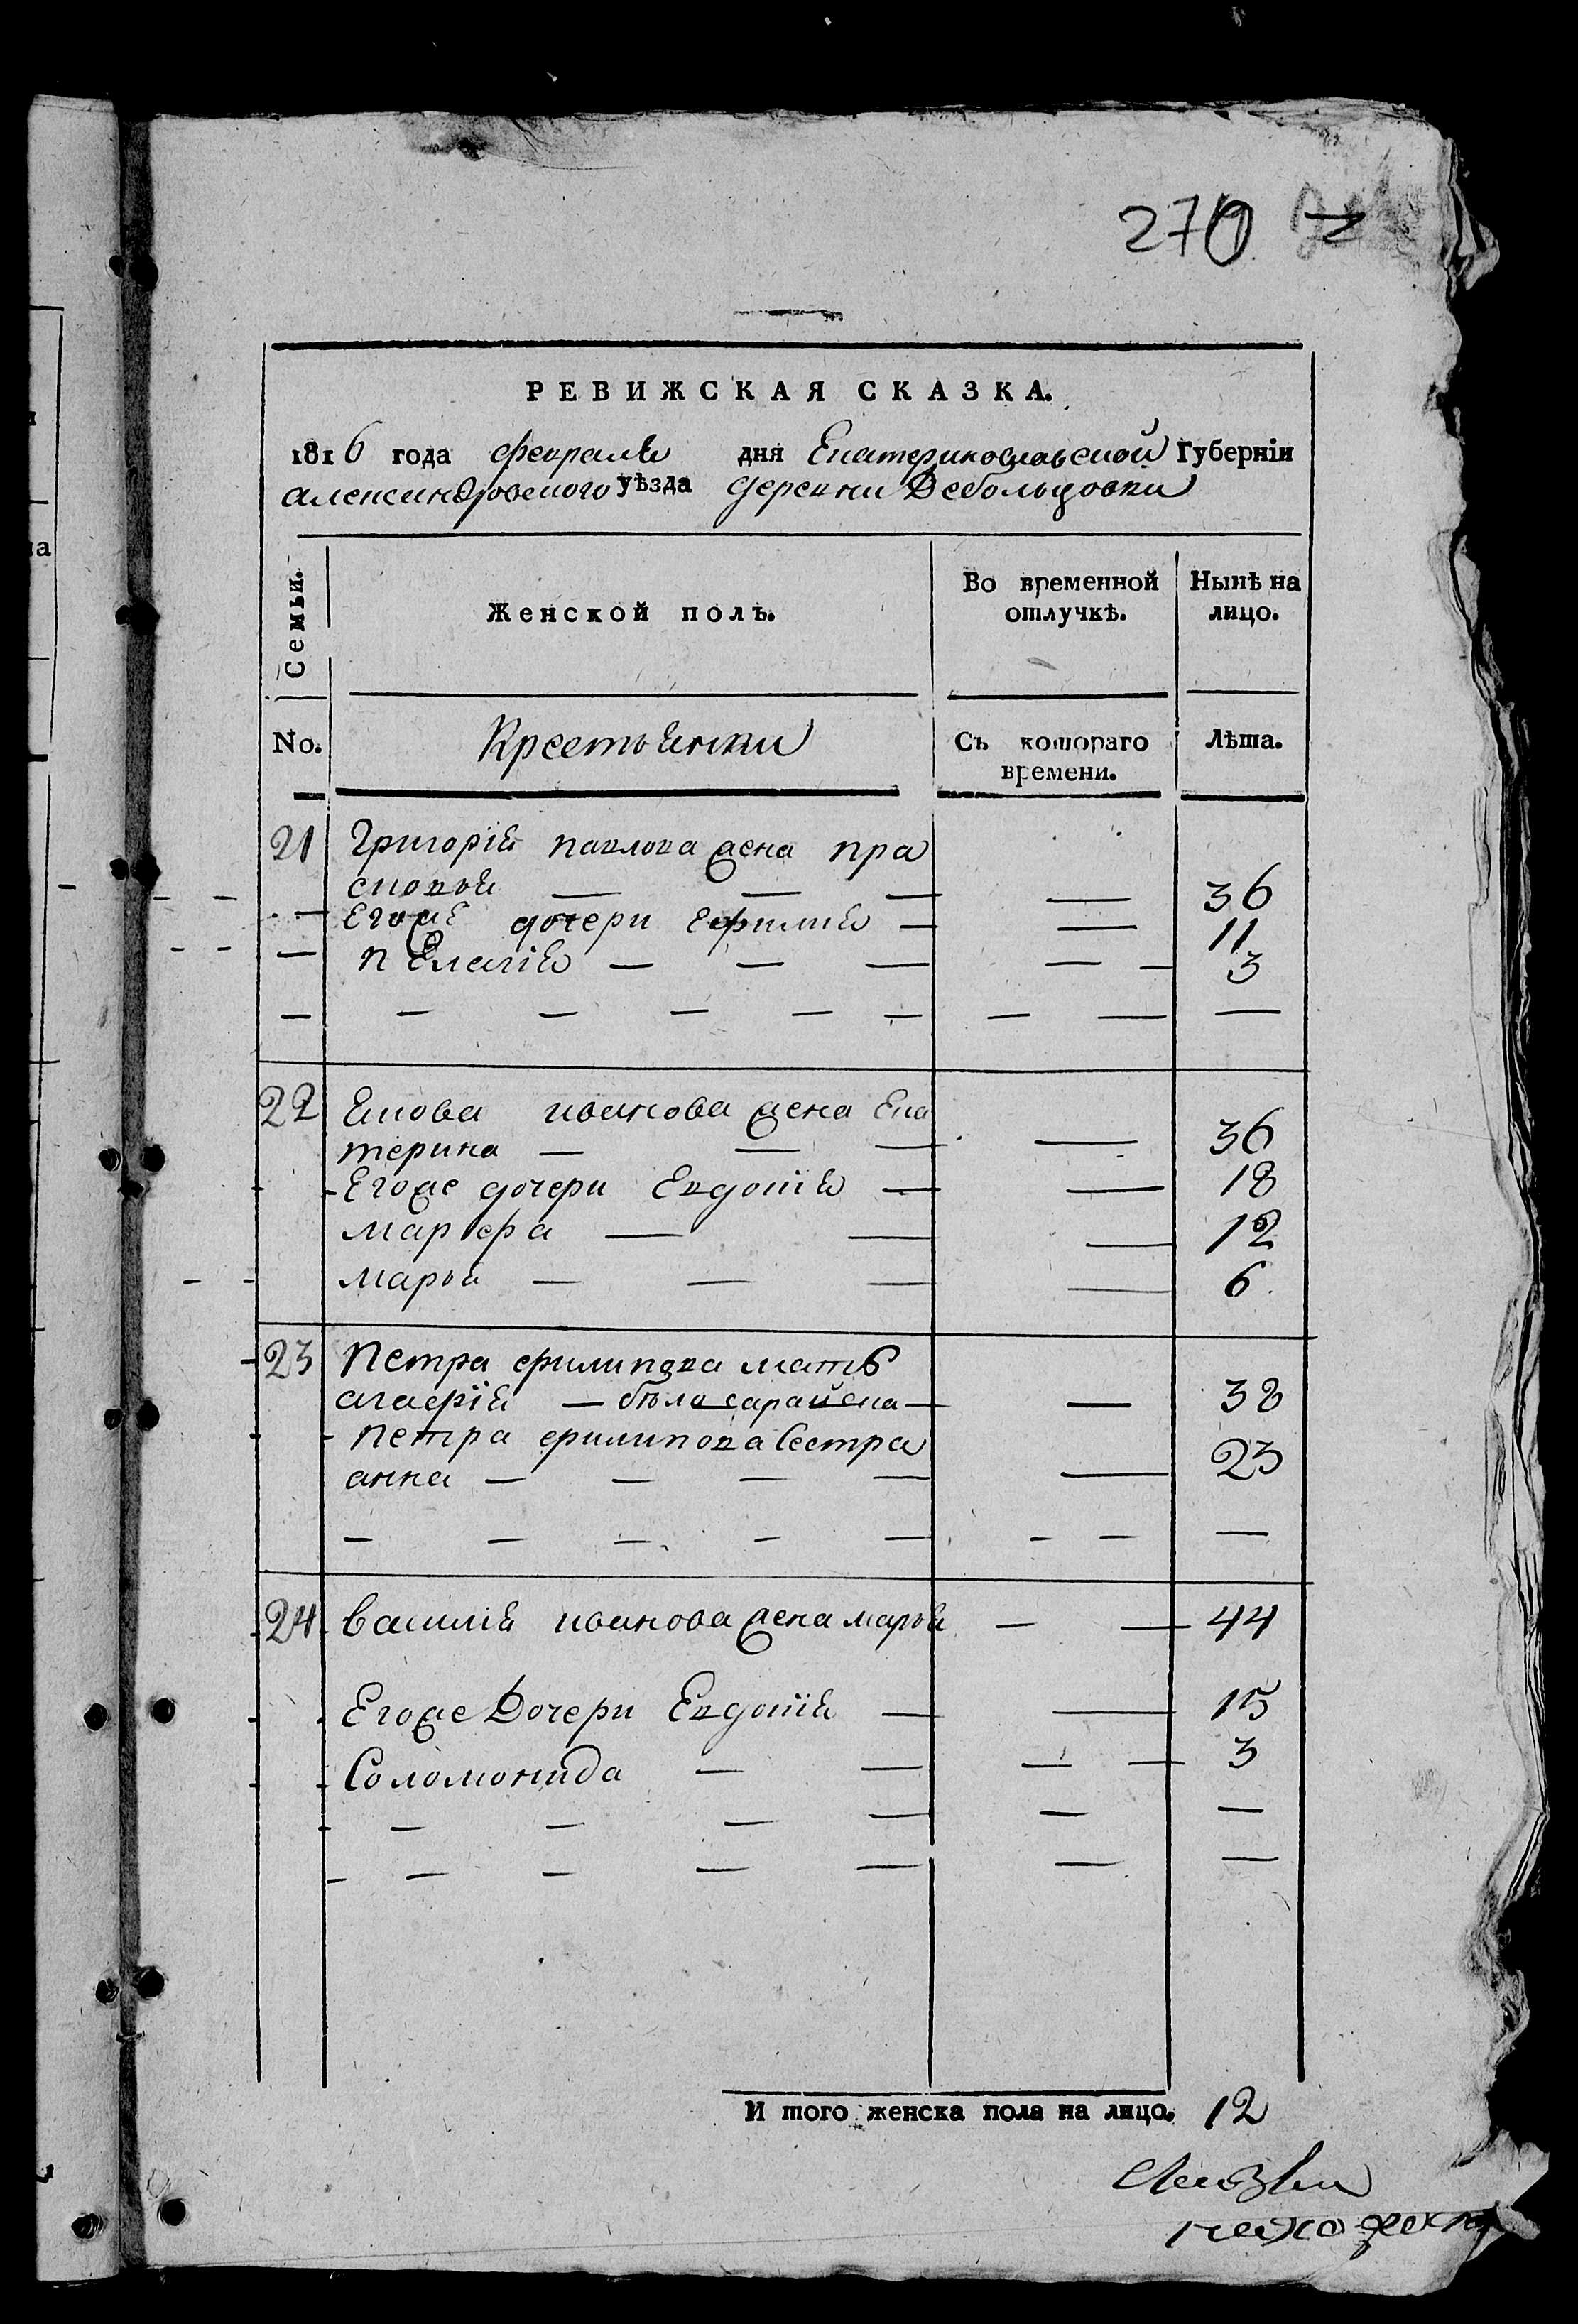 270
РЕВИЖСКАЯ СКАЗКА.
1816 года февраля дня Екатеринославской Губернїи
александровского уѣзда деревни Дебольцовки
Семьи.
Женской полъ.
Во временной отлучкѣ.
Нынѣ на лицо.
No.
Крестьянки
Съ котораго времени.
Лѣта.
21 Григорія павлова жена пра
сковья — — — — 36
Егоже дочери Ефимия — — 11
пелагія — — — — — 3
22 Якова иванова жена Ека
терина — — — — 36
Егоже дочери Евдокия — — 18
марфа — — — 12
марья — — — — 6
23 Петра филипова мать
агафїя — 38
Петра филипова Сестра
анна — — — — — 23
24 Василія иванова жена марья — — 44
Егоже Дочери Евдокїя — — 15
Соломонида — — — — 3
И того женска пола на лицо. 12